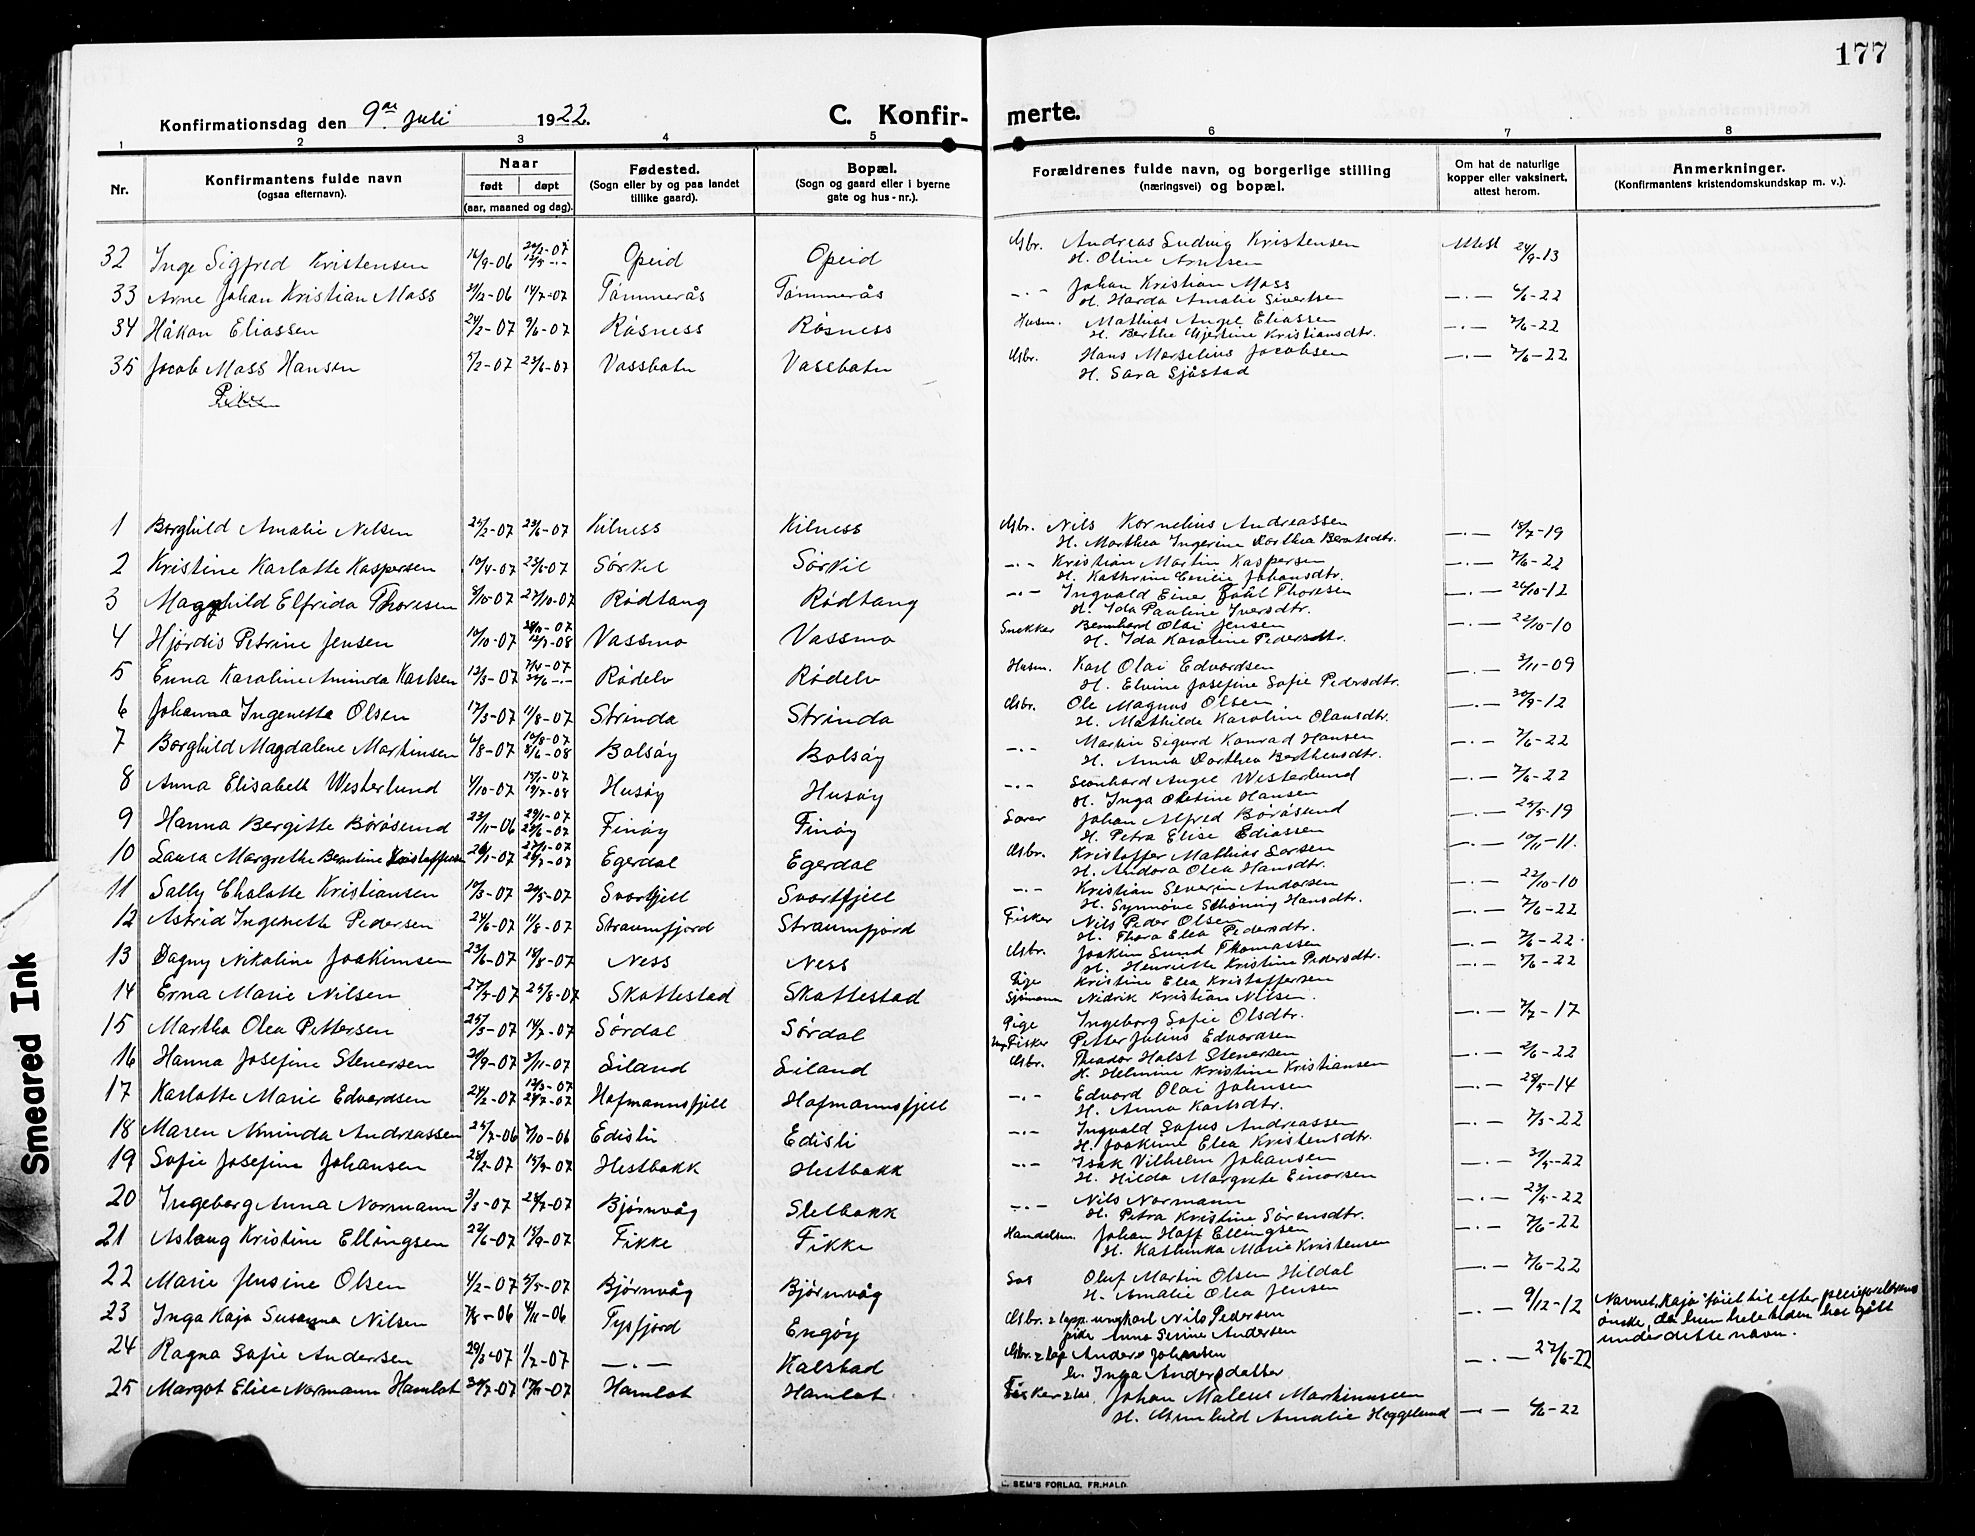 177
Konfirmationsdag den 9de Juli 1922.
C. Konfirmerte.
1 2 3 4 5 6 7 8
Nr.
Konfirmantens fulde navn
(ogsaa efternavn).
Naar
født døpt
(aar, maaned og dag).
Fødested.
(Sogn eller by og paa landet
tillike gaard).
Bopæl.
(Sogn og gaard eller i byerne
gate og hus-nr.).
Forældrenes fulde navn, og borgerlige stilling
(næringsvei) og bopæl.
Om hat de naturlige
kopper eller vaksinert,
attest herom.
Anmerkninger.
(Konfirmantens kristendomskundskap m. v.).
32 Inge Sigfred Kristensen 16/9-06 Opeid Opeid Gbr. Andreas Ludvig Kristensen Attest 24/9-13
H. Oline Arntsen
33 Arne Johan Kristian Moss 14/7-07 Tømmerås Tømmerås -"- Johan Kristian Moss
H. Harda Amalie Sivertsen
34 Håkon Eliassen 24/2-07 9/6-07 Røsness Røsness Husm. Mathias Angel Eliassen 7/6-22
H. Berthe Gjertine Kristiansdtr.
35 Jacob Moss Hansen 5/2-07 23/6-07 Vassbotn Vassbotn Gbr. Hans Marselius Jacobsen 7/6-22
H. Sara Sjåstad
Piker
1 Borghild Amalie Nilsen 23/6-07 Kilness Kilness Gbr. Nils Kornelius Andreassen 15/7-19
H. Marthea Ingerine Dorthea Berntsdtr.
2 Kristine Karlotte Kaspersen 10/4-07 23/6-07 Sørkil Sørkil -"- Kristian Martin Kaspersen 7/6-22
H. Kathrine Cecilie Johansdtr.
3 Magnhild Elfrida Thoresen 27/10-07 Rødtang Rødtang -"- Ingvald Einer Thoresen 26/10-12
H. Ida Pauline Iversdtr.
4 Hjørdis Petrine Jensen 10/10-07 Vassmo Vassmo Snekker Bernhard Olai Jensen 22/10-10
H. Ida Karoline Pedersdtr.
5 Enna Karoline Aminda Karlsen 13/3-07 Rødelv Rødelv Husm. Karl Olai Edvardsen 3/11-09
H. Elvine Josefine Sofie Pedersdtr.
6 Johanna Ingenette Olsen 17/3-07 11/8-07 Strinda Strinda Gbr. Ole Magnus Olsen 30/9-12
H. Mathilde Karoline Olausdtr.
7 Borghild Magdalene Martinsen 6/8-07 Bolsøy Bolsøy -"- Martin Sigurd Konrad Hansen 7/6-22
H. Anna Dorthea Bertheusdtr.
8 Anna Elisabeth Westerlund 4/10-07 Husøy Husøy -"- Leonhard Angel Westerlund 7/6-22
H. Inga Oletine Hansen
9 Hanna Bergitte Børøsund 23/11-06 Finøy Finøy Johan Alfred Børøsund 25/5-19
H. Petra Elise Ediassen
10 Laura Margrethe Berntine Kristoffersen Egerdal Egerdal Gbr. Kristoffer Mathias Larsen 10/11-11.
H. Andora Olea Hansdtr.
11 Sally Charlotte Kristiansen 10/3-07 20/5-07 Svartfjell Svartfjell -"- Kristian Severin Andorsen 22/10-10
H. Synnøve Schöning Hansdtr.
12 Astrid Ingenette Pedersen 24/6-07 11/8-07 Straumfjord Straumfjord Fisker Nils Peder Olsen 7/6-22
H. Thora Elea Pedersdtr.
13 Dagny Nikoline Joakimsen 23/6-07 18/8-07 Ness Ness Gbr. Joakim Sund Thomassen 7/6-22.
H. Henriette Kristine Pedersdtr.
14 Erna Marie Nilsen 25/8-07 Skottestad Skottestad Pige Kristine Elea Kristoffersen 7/6-22
Sjømann Nidrik Kristian Nilsen.
15 Martha Olea Pettersen 25/3-07 14/7-07 Sørdal Sørdal Pige Ingeborg Sofie Olsdtr. 7/7-17
Fisker Petter Julius Edvardsen
16 Hanna Josefine Stenersen 3/11-07 Eiland Eiland Gbr. Theodor Holst Stenersen 2/6-22
H. Helmine Kristine Kristiansen
17 Karlotte Marie Edvardsen 24/2-07 Hofmannsfjell Hofmannsfjell -"- Edvard Olai Johnsen 28/5-14
H. Anna Karlsdtr.
18 Maren Aminda Andreassen 7/10-06 Edisli Edisli -"- Ingvald Sofus Andreassen 7/3-22
H. Joakine Elea Kristensdtr.
19 Sofie Josefine Johansen Hestbakk Hestbakk -"- Isak Vilhelm Johansen 31/5-22
H. Hilda Margrete Einorsen
20 Ingeborg Anna Normann 3/3-07 28/7-07 Bjørnvåg Stelbakk -"- Nils Normann 23/5-22
H. Petra Kristine Sørensdtr.
21 Aslaug Kristine Ellingsen 22/6-07 15/9-07 Fikke Fikke Handelsm. Johan Hoff Ellingsen 7/6-22
H. Kathinka Marie Kristensen
22 Marie Jensine Olsen 4/2-07 5/5-07 Bjørnvåg Bjørnvåg Oluf Martin Olsen Hildal 7/6-22
H. Amalie Olea Jensen
23 Inga Kaja Susanna Nilsen 7/8-06 4/11-06 Tysfjord Engøy Gbr. lapp. ungkarl Nils Pedersen 9/12-12 Navnet "Kaja" føiet til efter pleieforeldrenes
pike Anna Serine Andersen ønske, da hun hele tiden har gått
under dette navn.
24 Ragna Sofie Andersen 29/3-07 1/7-07 -"- Kalstad Gbr. lap Anders Johansen 27/6-22
h. Inga Andersdatter
25 Margot Elise Normann Hamlot 30/7-07 17/11-07 Hamlot Hamlot Fisker Johan Maleus Martinussen 6/6-22
H. Gunhild Amalie Heggelund
SEM'S FORLAG, FR.HALD.
Smeared Ink